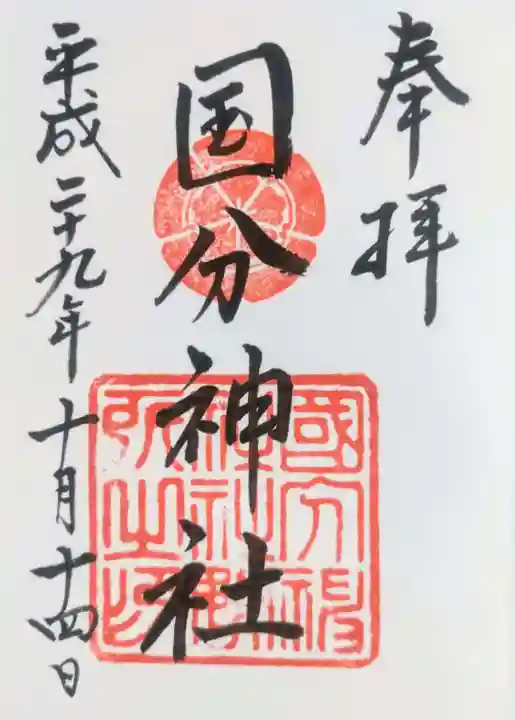 奉拝
国分神社
平成二十九年十月十四日